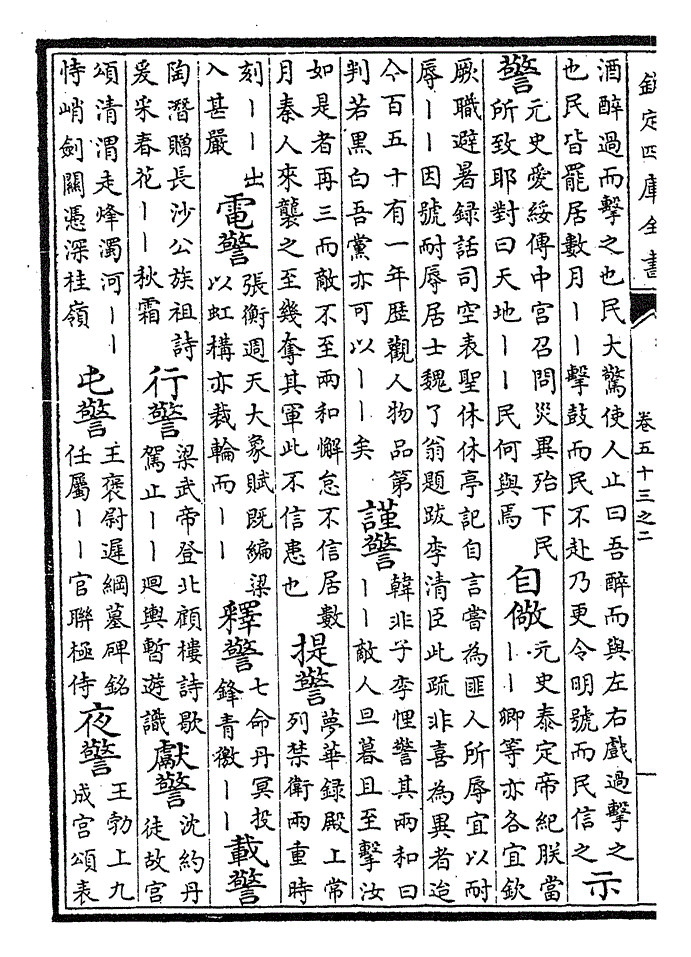 欽定四庫全書
卷五十三之二
酒醉過而擊之也民大驚使人止曰吾醉而與左右戲過擊之
也民皆罷居數月丨丨擊鼓而民不赴乃更令明號而民信之
示
警
元史愛綏傳中宮召問災異殆下民
所致耶對曰天地丨丨民何與焉
自儆
元史泰定帝紀朕當
丨丨卿等亦各宜欽
厥職避暑録話司空表聖休休亭記自言嘗為匪人所辱宜以耐
辱丨丨因號耐辱居士魏了翁題跋李清臣此疏非喜為異者迨
今百五十有一年歴觀人物品第
判若黑白吾黨亦可以丨丨矣
謹警
韓非子李悝警其兩和曰
丨丨敵人旦暮且至擊汝
如是者再三而敵不至兩和懈怠不信居數
月秦人來襲之至幾奪其軍此不信患也
提警
夢華録殿上常
列禁衛兩重時
刻丨丨出
入甚嚴
電警
張衡週天大象賦既編梁
以虹構亦裁輪而丨丨
釋警
七命丹冥投
鋒青徼丨丨
載警
陶潛贈長沙公族祖詩
爰采春花丨丨秋霜
行警
梁武帝登北顧樓詩歇
駕止丨丨廻輿暫遊識
獻警
沈約丹
徒故宮
頌清渭走烽濁河丨丨
恃峭劍關憑深桂嶺
屯警
王褒尉遲綱墓碑銘
任屬丨丨官聯極侍
夜警
王勃上九
成宮頌表